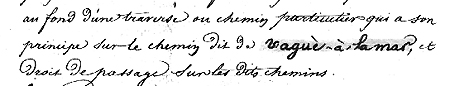 au fond d'une traverse ou chemin particulier qui a son
principe sur le chemin dit de vaguè-à-la mar, et
droit de passage sur les dits chemins.